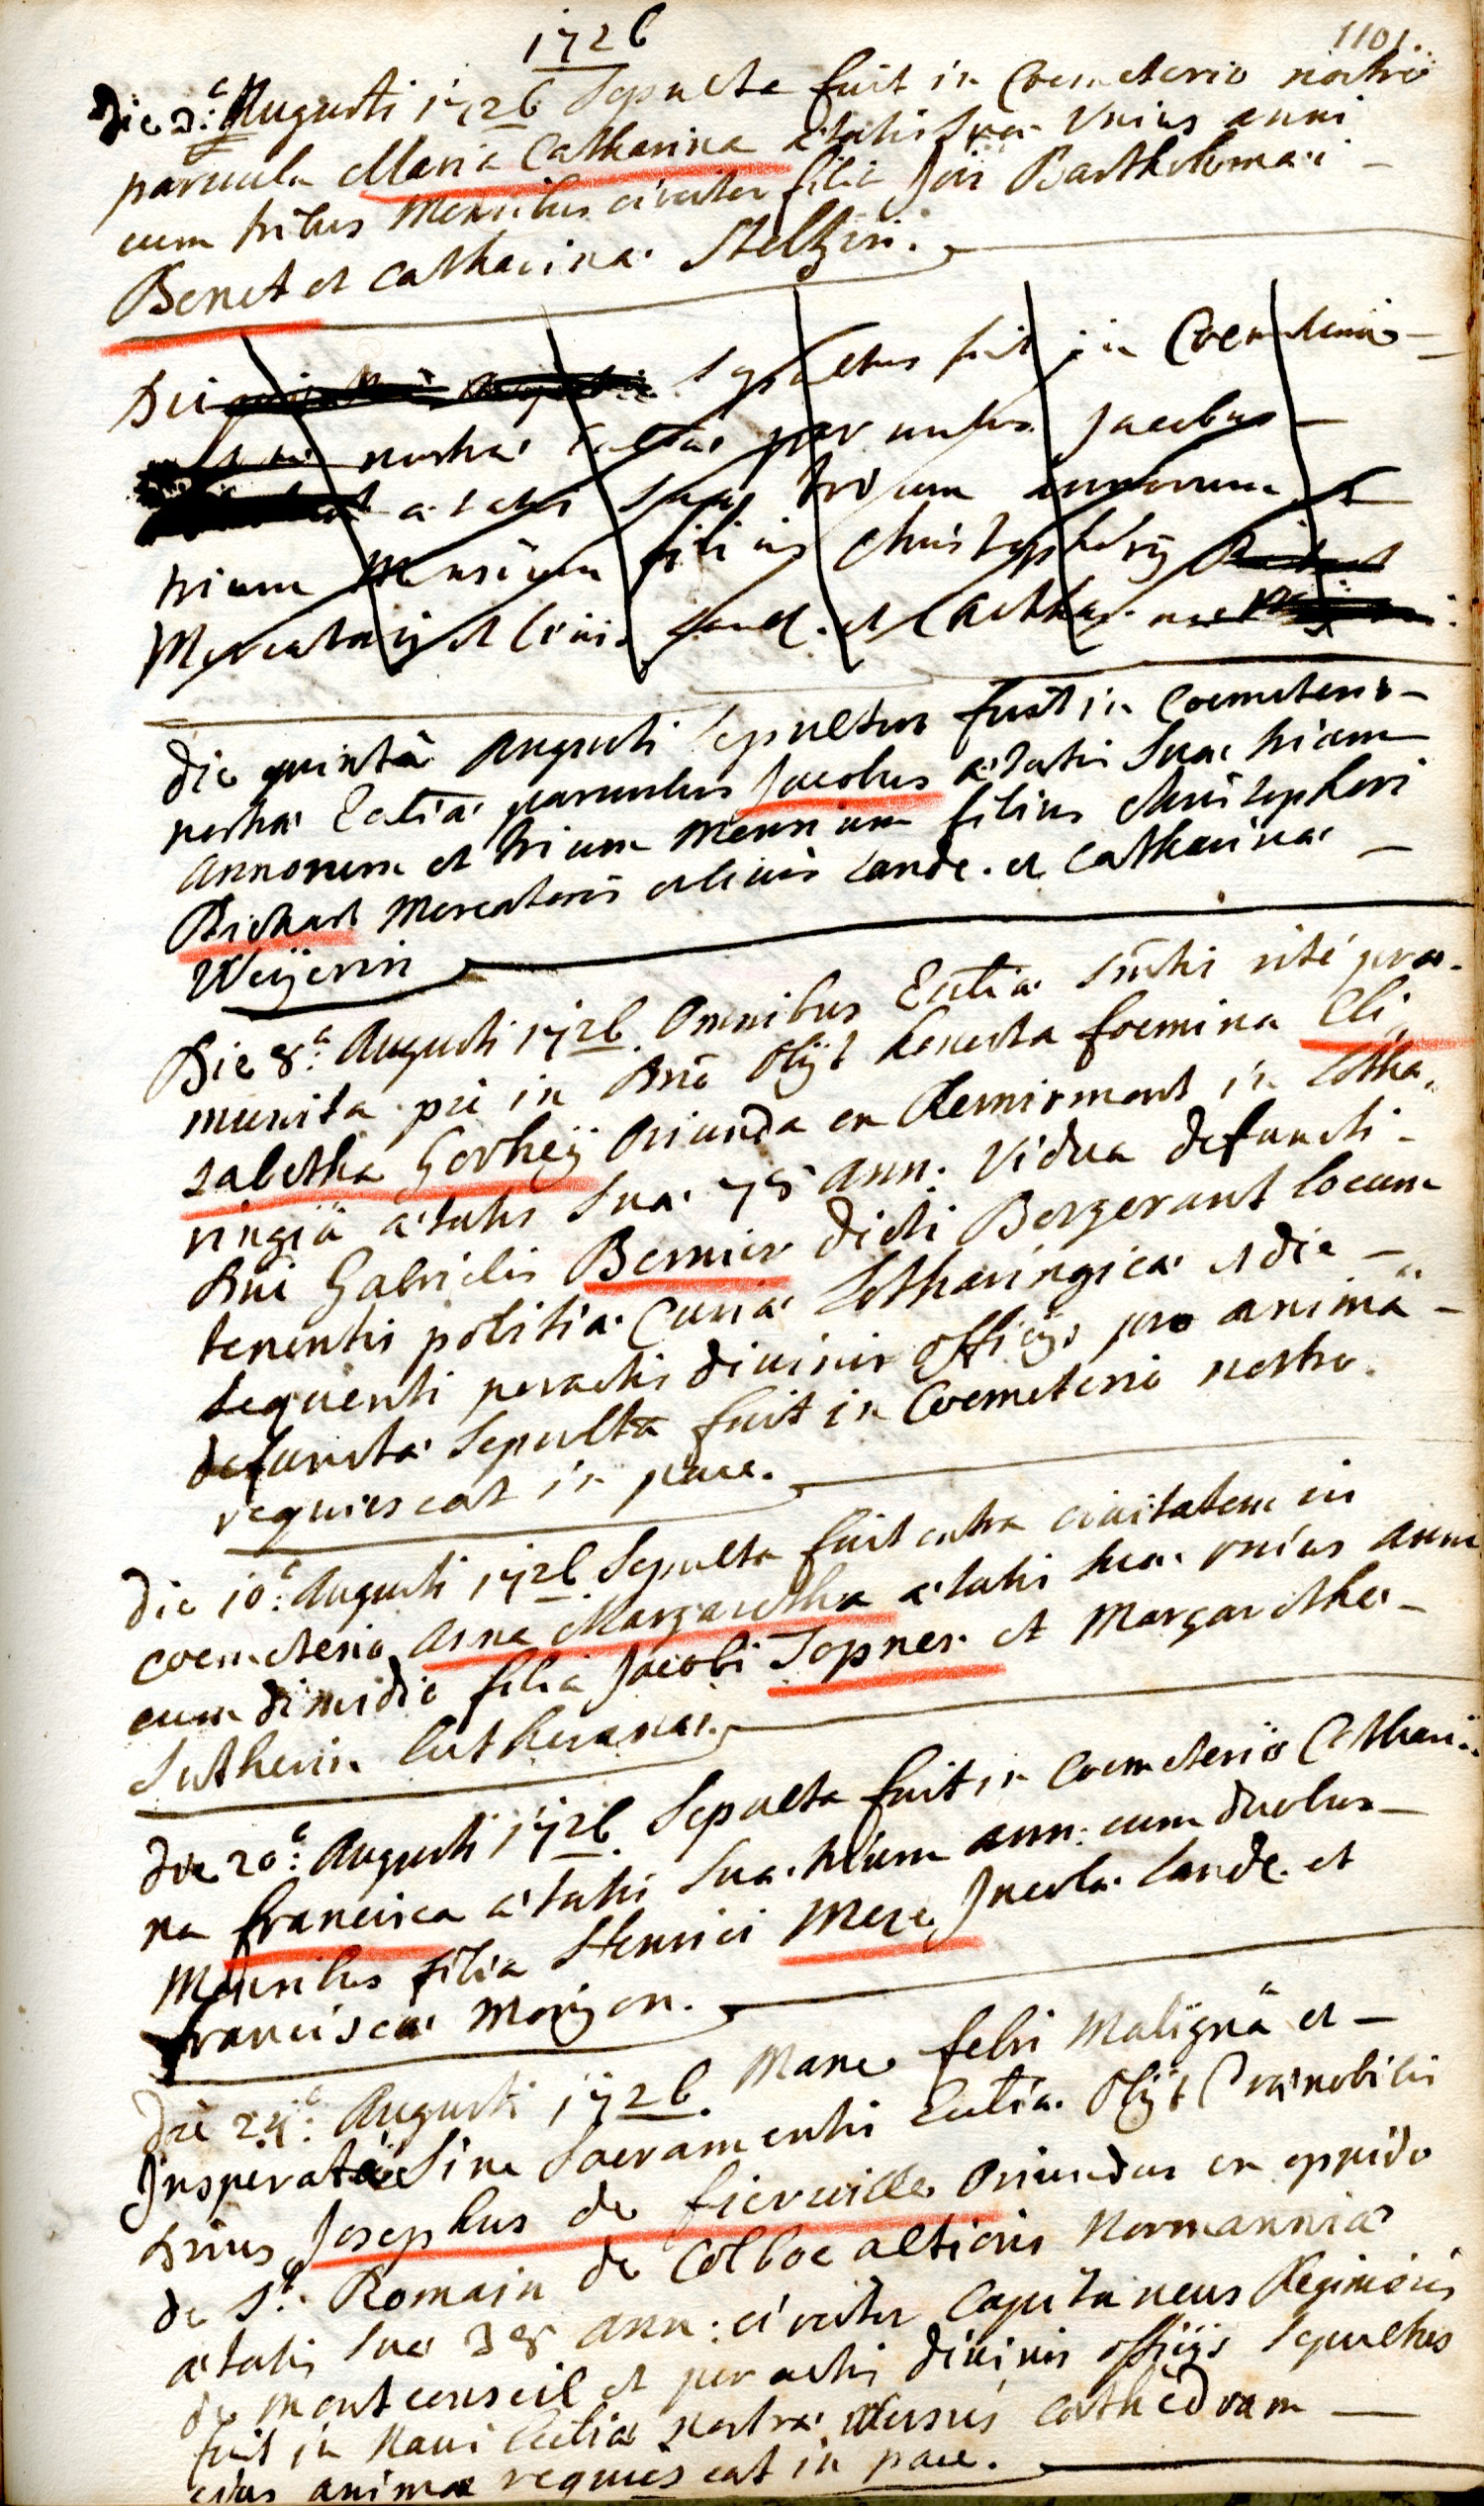 1726
1101.
Die 2.a Augusti 1726 Sepulta fuit in Coemeterio nostro
parvula Maria Catharina ætatis Suæ Unius anni
cum tribus Mensibus circiter filia Jois Bartholomæi -
Benet et Catharinæ Steltzin.
Die Sepultus fuit in Coemeterio -
nostræ Ecclæ parvulus Jacobus -
ætatis Suæ trium annorum et
trium Mensium filius Christophori
Mercatoris et Civis Land. et Catharinæ
Die quintâ Augusti Sepultus fuit in Coemeterio -
nostræ Eccliæ parvulus Jacobus ætatis Suæ trium
Annorum et trium Mensium filius Christophori
Bichart Mercatoris et Civis Lande. et Catharinæ -
Weijerin
Die 8.a Augusti 1726. Omnibus Eccliæ Smtis rité præ-
munita piè in Dno Obijt honesta foemina Eli,
zabetha Gorheij Oriunda en Remiremont in Lotha,
ringiâ ætatis Suæ 75 ann: Vidua defuncti -
Dni Gabrielis Bernier dicti Bergerant locum
tenentis politiæ Curiæ Lotharingicæ et die -
Sequenti peractis divinis officijs pro animâ -
defunctæ Sepulta fuit in Coemeterio nostro.
requiescat in pace.
Die 10.a Augusti 1726. Sepulta fuit extra civitatem in
coemeterio Anna Margaretha ætatis suæ unius anni
cum dimidio filia Jacobi Topner et Margarethæ -
Lutherin lutheranæ.
Die 20.a Augusti 1726. Sepulta fuit in Coemeterio Cathari..
na francisca ætatis Suæ trium ann: cum duobus -
Mensibus filia Henrici Mere Incolæ Lande. et
franciscæ Morizon.
Die 24.a Augusti 1726. Mane febri Malignâ et -
Insperatâ Sine Sacramentis Eccliæ Obijt Prænobilis
Dnus Josephus de fierville Oriundus en oppido
de St. Romain de Colboc altioris Normanniæ
ætatis Suæ 38 ann: circiter Capitaneus Regiminis
de montconseil et peractis divinis officijs Sepultus
fuit in Navi Eccliæ Nostræ versus cathedram -
eius animæ requiescat in pace.